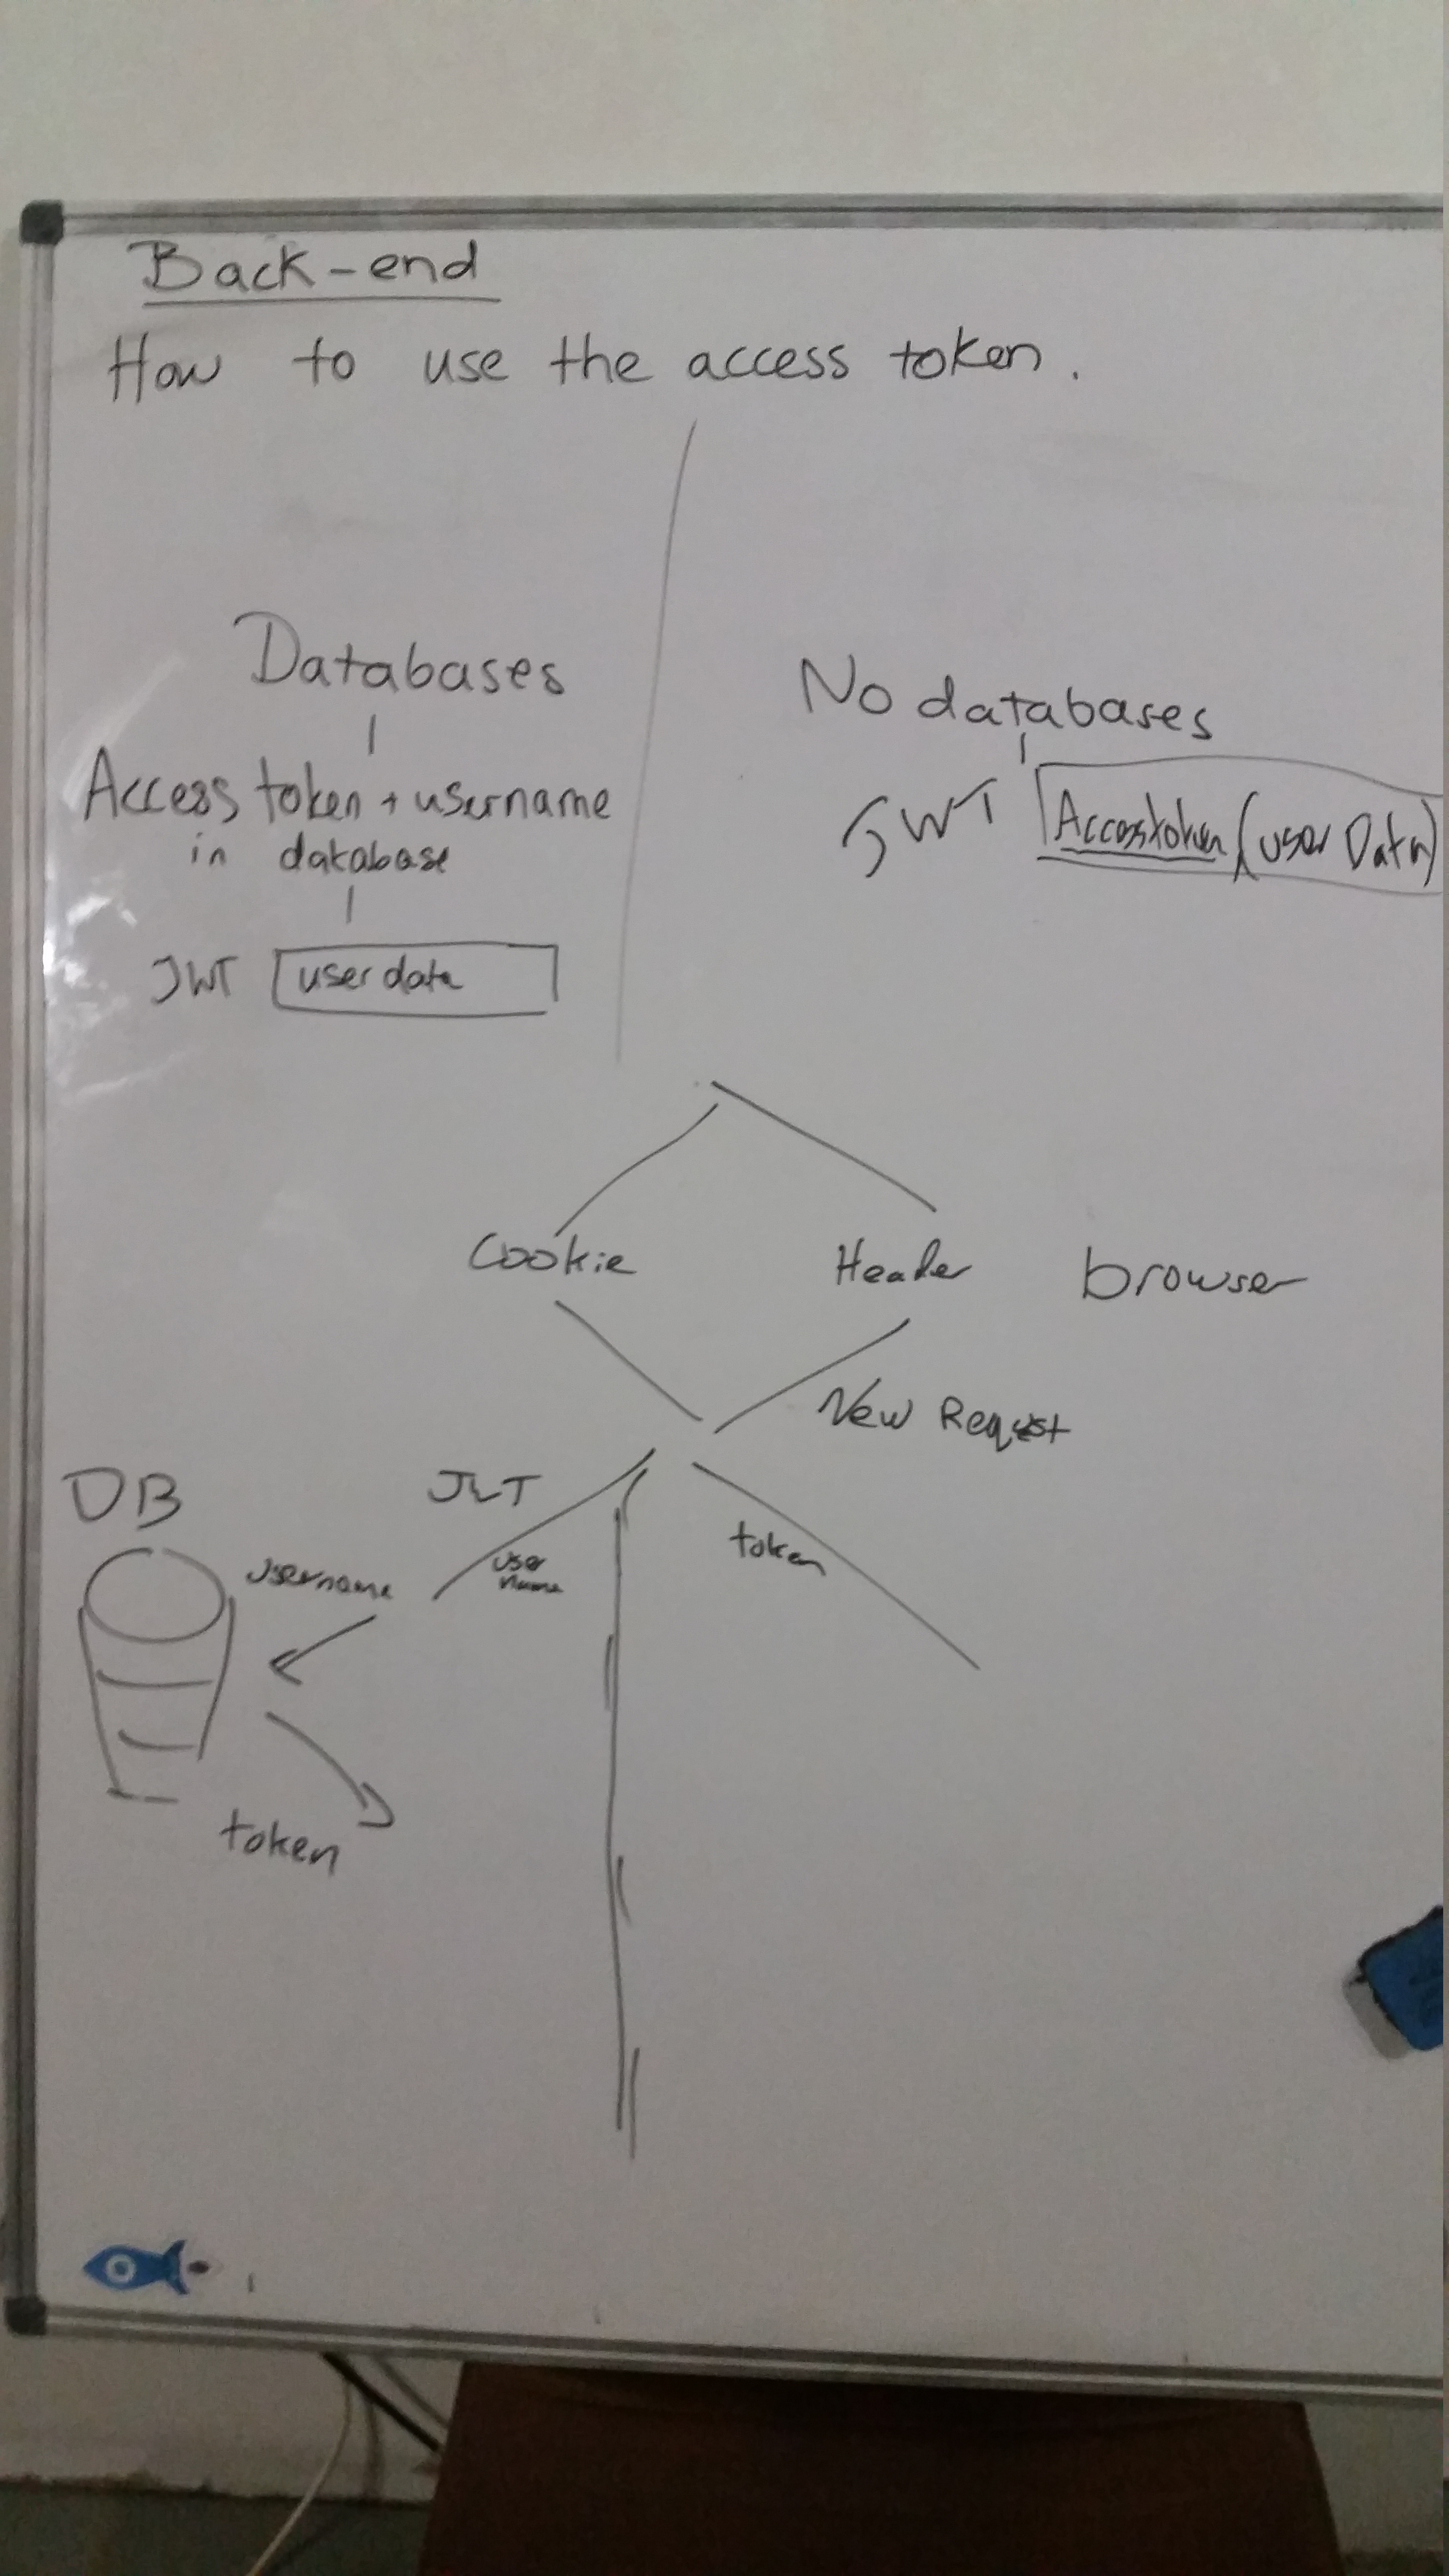 Back-end
How to use the access token.
Databases
Access token + username
in database
JWT user data
No databases
JWT Accesstoken (user Data)
Cookie Header browser
New Request
DB JWT
username user name token
token